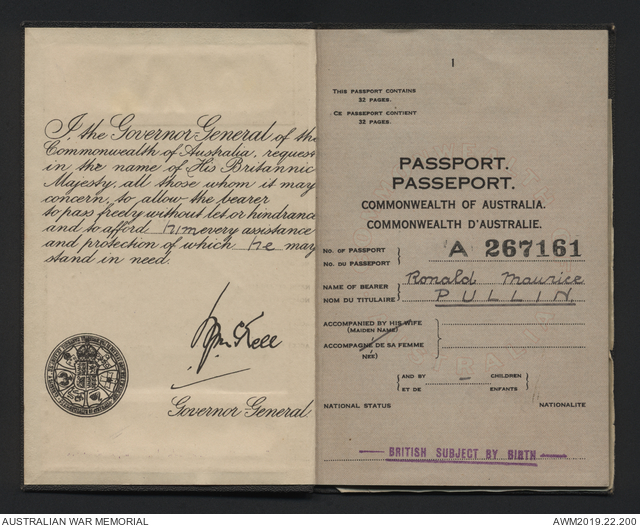 I, the Governor-General of the
Commonwealth of Australia, request
in the name of His Britannic
Majesty, all those whom it may
concern, to allow the bearer
to pass freely without let or hindrance
and to afford him every assistance
and protection of which he may
stand in need.
Governor-General
1
THIS PASSPORT CONTAINS
32 PAGES.
CE PASSEPORT CONTIENT
32 PAGES.
PASSPORT.
PASSEPORT.
COMMONWEALTH OF AUSTRALIA.
COMMONWEALTH D'AUSTRALIE.
NO. OF PASSPORT
NO. DU PASSEPORT
A 267161
NAME OF BEARER
NOM DU TITULAIRE
Ronald Maurice
PULLIN.
ACCOMPANIED BY HIS WIFE
(MAIDEN NAME)
ACCOMPAGNÉ DE SA FEMME
NÉE)
AND BY - CHILDREN
ET DE ENFANTS
NATIONAL STATUS NATIONALITE
BRITISH SUBJECT BY BIRTH
AUSTRALIAN WAR MEMORIAL
AWM2019.22.200